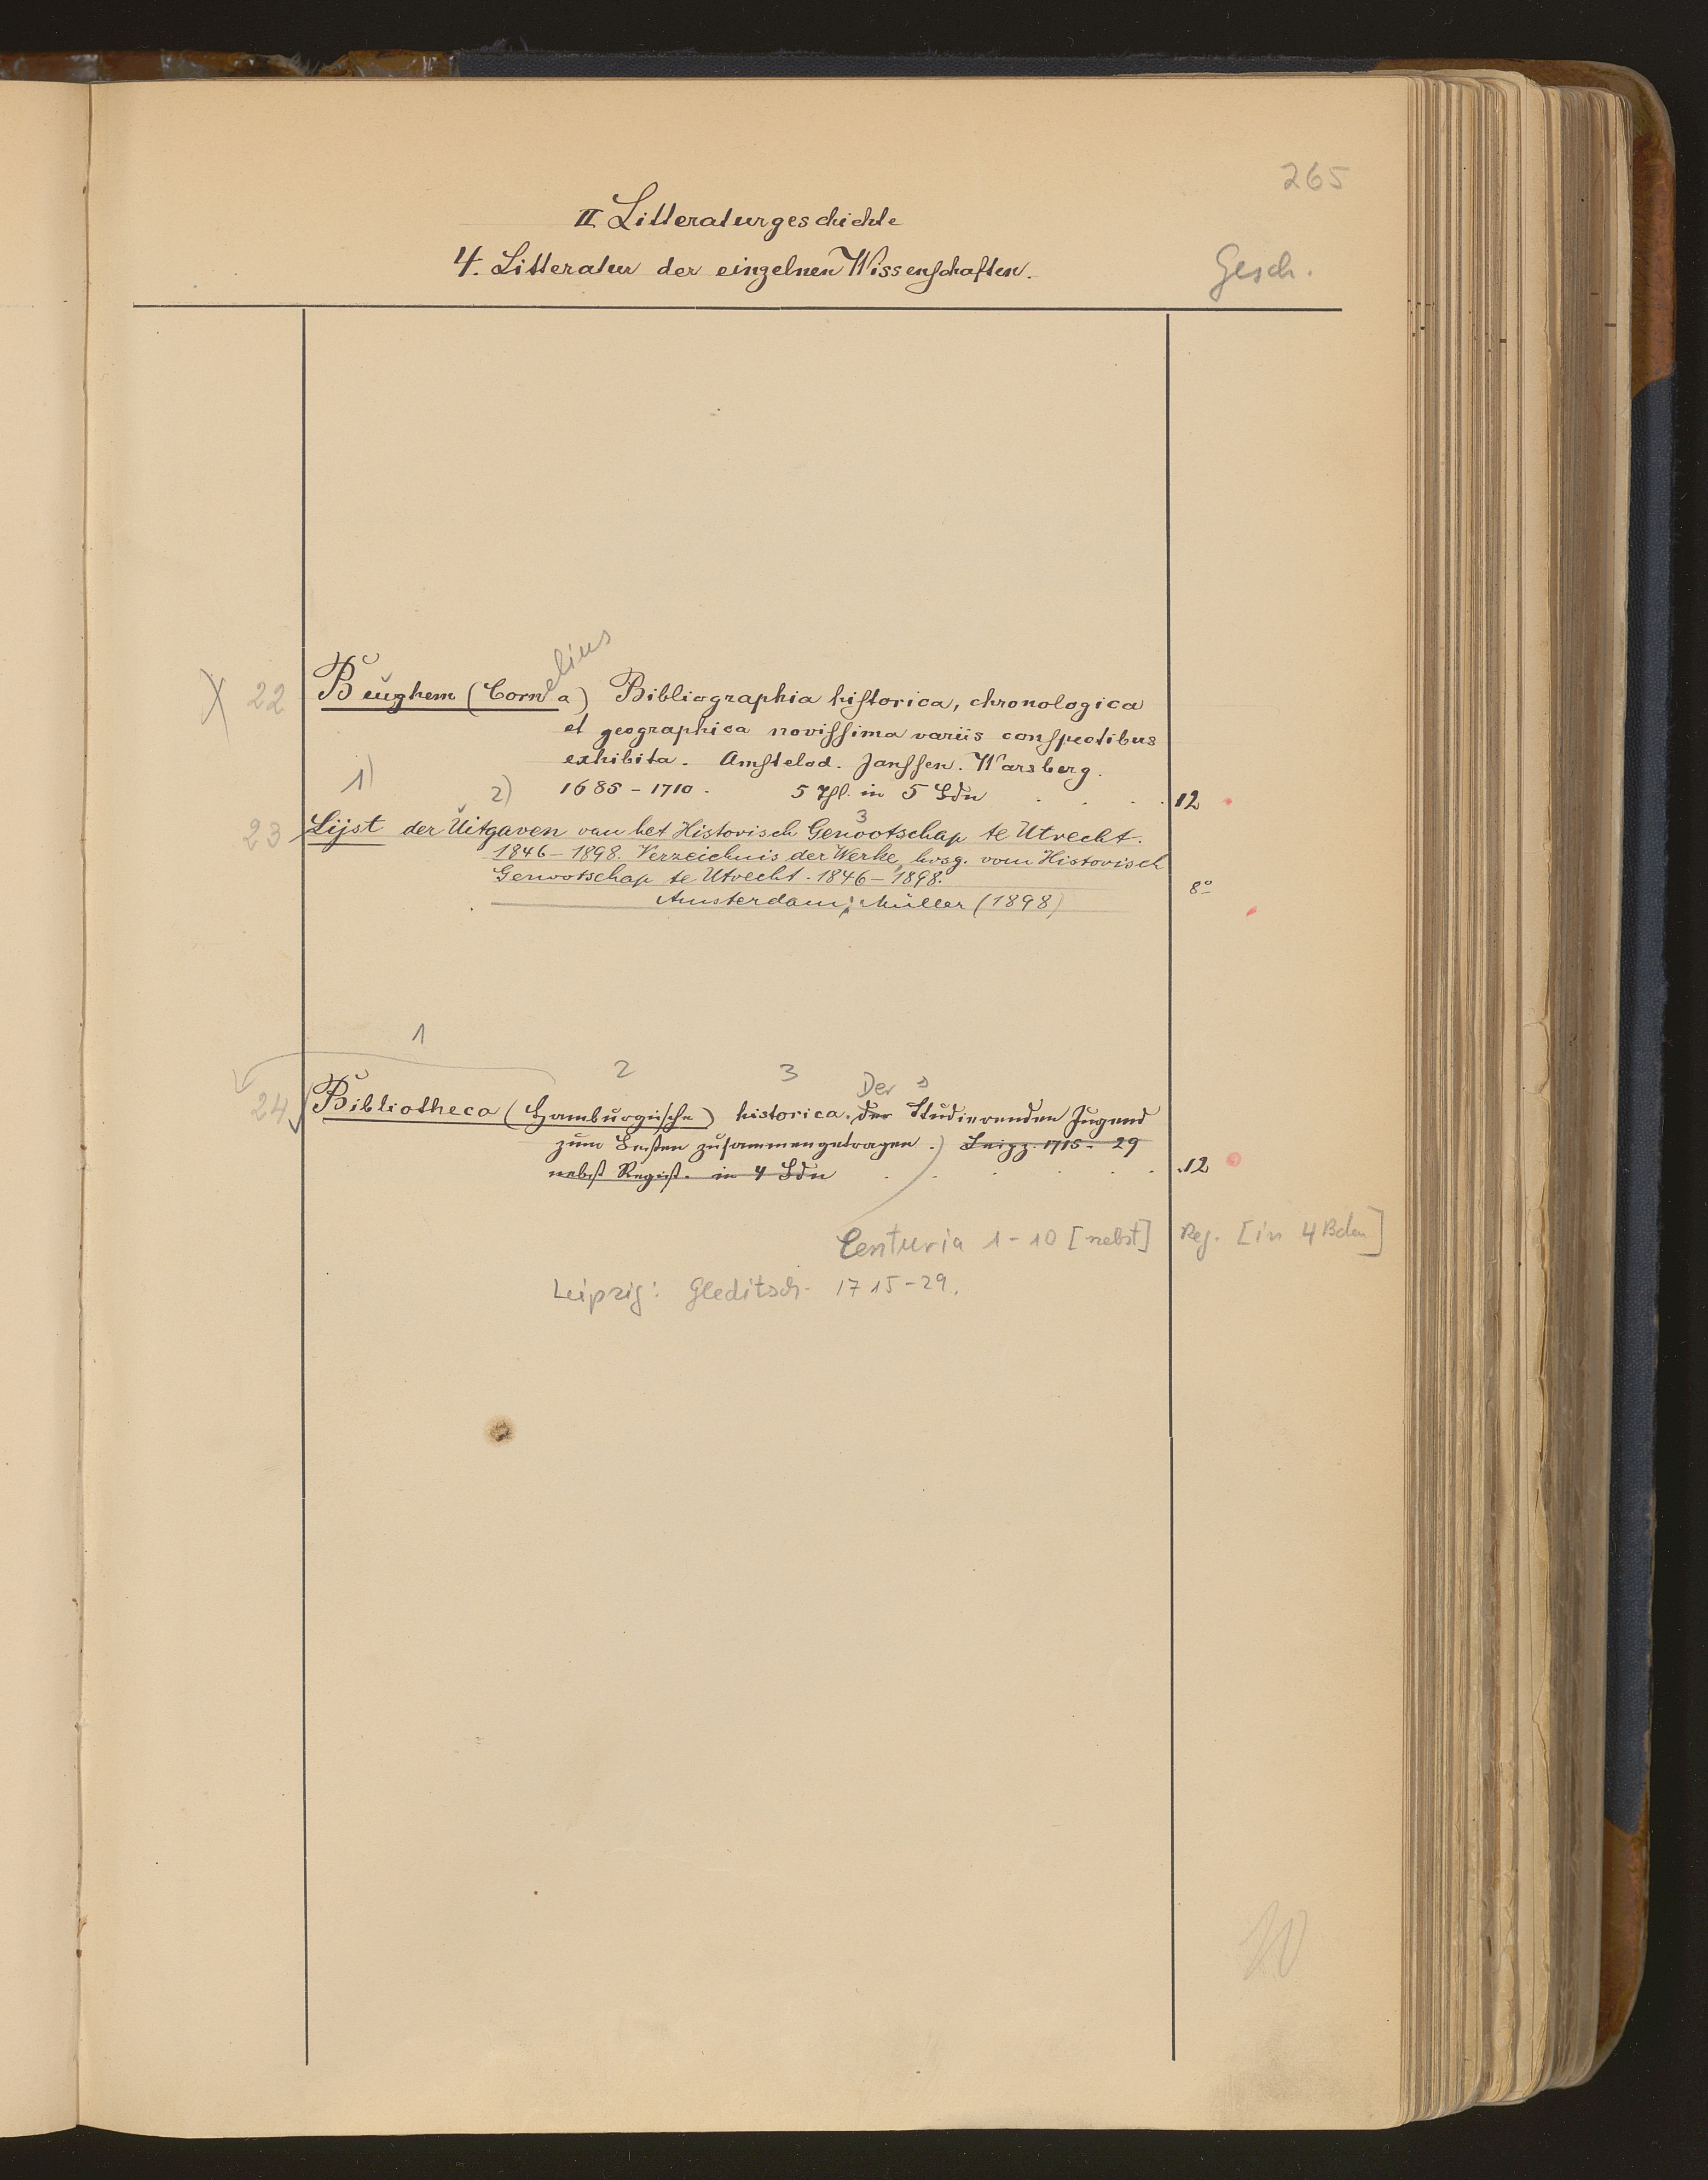 265
II Litteraturgeschichte
4. Litteratur der einzelnen Wissenschaften.
Gesch.
elius
X 22 Beughem (Corn a) Bibliographia historica, chronologica
et geographica novissima variis conspectibus
exhibita. Amstelod. Janssen. Warsberg.
1) 2) 1685-1710. 5 Thl. in 5 Bdn . . . . 12
3
23 Lijst der Uitgaven van het Historisch Genootschap te Utrecht.
1846-1898. Verzeichnis der Werke, hrsg. vom Historisch
Genootschap te Utrecht. 1846-1898. 8°
Amsterdam: Müller (1898)
1
2 3 Der
24 Bibliotheca (Hamburgische) historica, der Studierenden Jugend
zum Besten zusammengetragen.) Leipz. 1715-29
nebst Regist. in 4 Bdn . . . . . 12
Centuria 1-10 [nebst] Reg. [in 4 Bden]
Leipzig: Gleditsch. 1715-29.